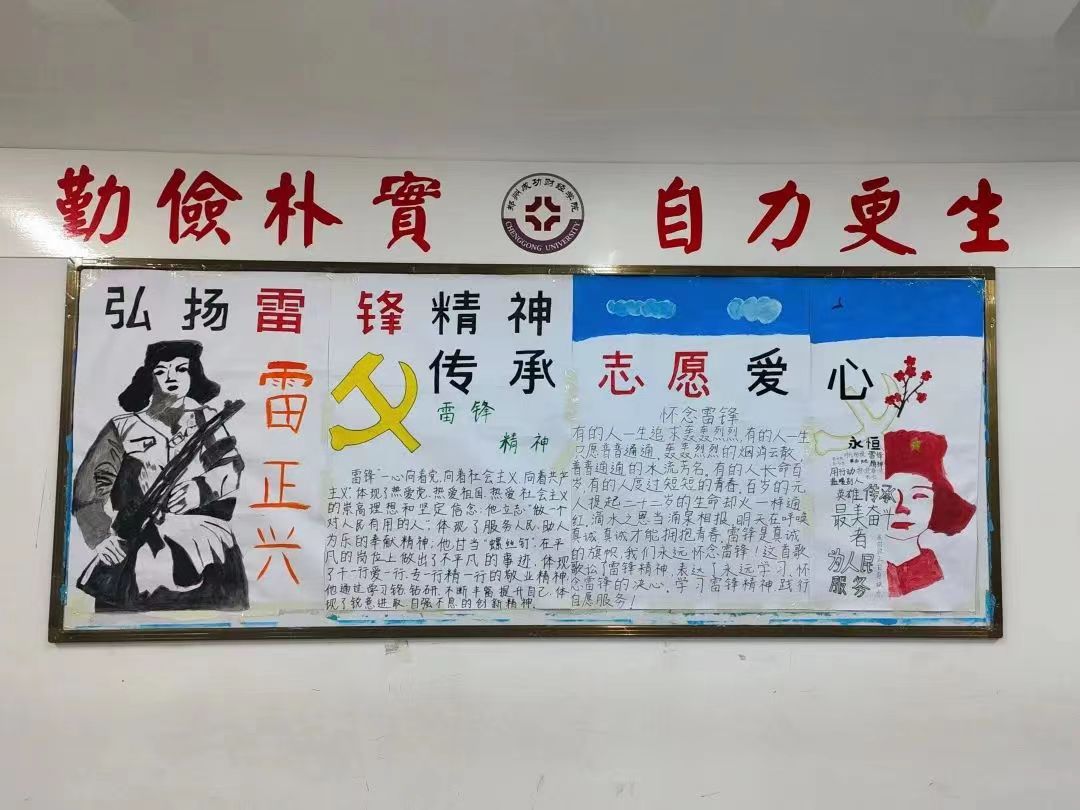 勤儉朴實
郑州成功财经学院
CHENGGONG UNIVERSITY
自力更生
弘扬雷锋精神
传承志愿爱心
雷正兴
雷锋
精神
雷锋“一心向着党,向着社会主义,向着共产
主义”,体现了热爱党、热爱祖国、热爱社会主义
的崇高理想和坚定信念;他立志“做一个
对人民有用的人”,体现了服务人民、助人
为乐的奉献精神;他甘当“螺丝钉”,在平
凡的岗位上做出了不平凡的事迹,体现
了干一行爱一行、专一行精一行的敬业精神
他通过学习锐钻研,不断丰富提升自己,体
现了锐意进取、自强不息的创新精神.
怀念雷锋
有的人一生追求轰轰烈烈,有的人一生
只愿普普通通,轰轰烈烈的烟消云散,
普普通通的水流芳名,有的人长命百
岁,有的人度过短短的青春,百岁的无
人提起二十一岁的生命却火一样通
红,滴水之恩当涌泉相报,明天在呼唤
真诚,真诚才能拥抱青春,雷锋是真诚
的旗帜,我们永远怀念雷锋!这首歌
歌公了雷锋精神,表达了永远学习、怀
念雷锋的决心,学习雷锋精神,践行
自愿服务!
永恒
雷锋
精神
用行动
温暖别人
英雄传承
最美奋斗
者
为人民
服务